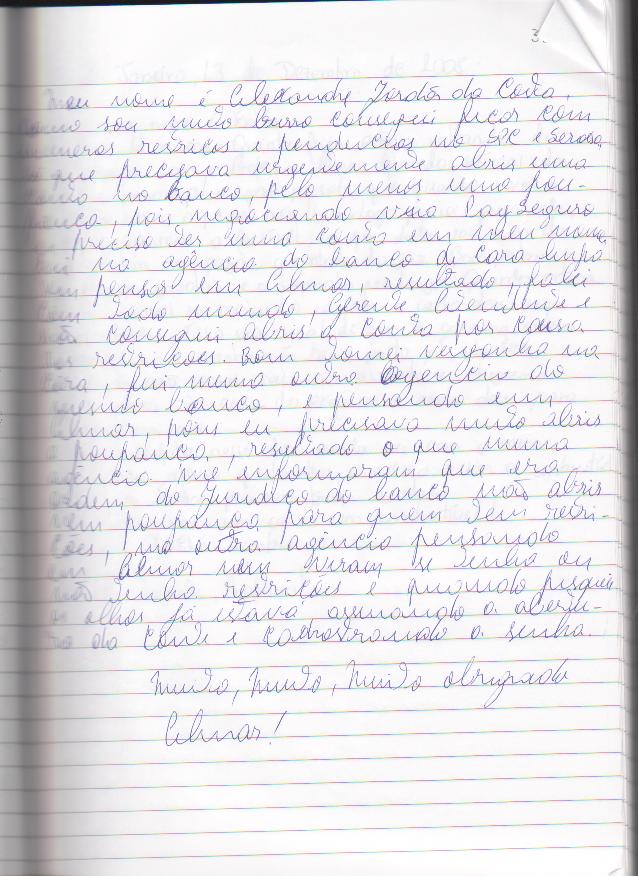 3.
meu nome é Alexandre Jordão da Costa,
como sou muito burro consegui ficar com
inúmeros restricos e pendências no SPC e Serasa
o que precisava urgentemente abrir uma
conta no banco, pelo menos uma pou-
pança, pois negociando via PagSeguro
preciso ter uma conta em meu nome
fui na agência do banco de cara limpa
sem pensar em Elmar, resultado, falei
com todo mundo, Gerente Atendente e
não consegui abrir a conta por causa
das restricões. Bom tomei vergonha na
cara, fui numa outra agencia do
mesmo banco, e pensando em
Elmar, pois eu precisava muito abrir
a poupança, resultado o que numa
agência me informaram que era
ordem do Juridico do banco não abrir
nem poupança para quem tem restri-
cões, na outra agência pensando
em Elmar nem viram se tinha ou
não tinha restricões e quando pisquei
os olhos já estava assinando a abertu-
ra da conta e cadastrando a senha.
Muito, Muito, Muito obrigado
Elmar!